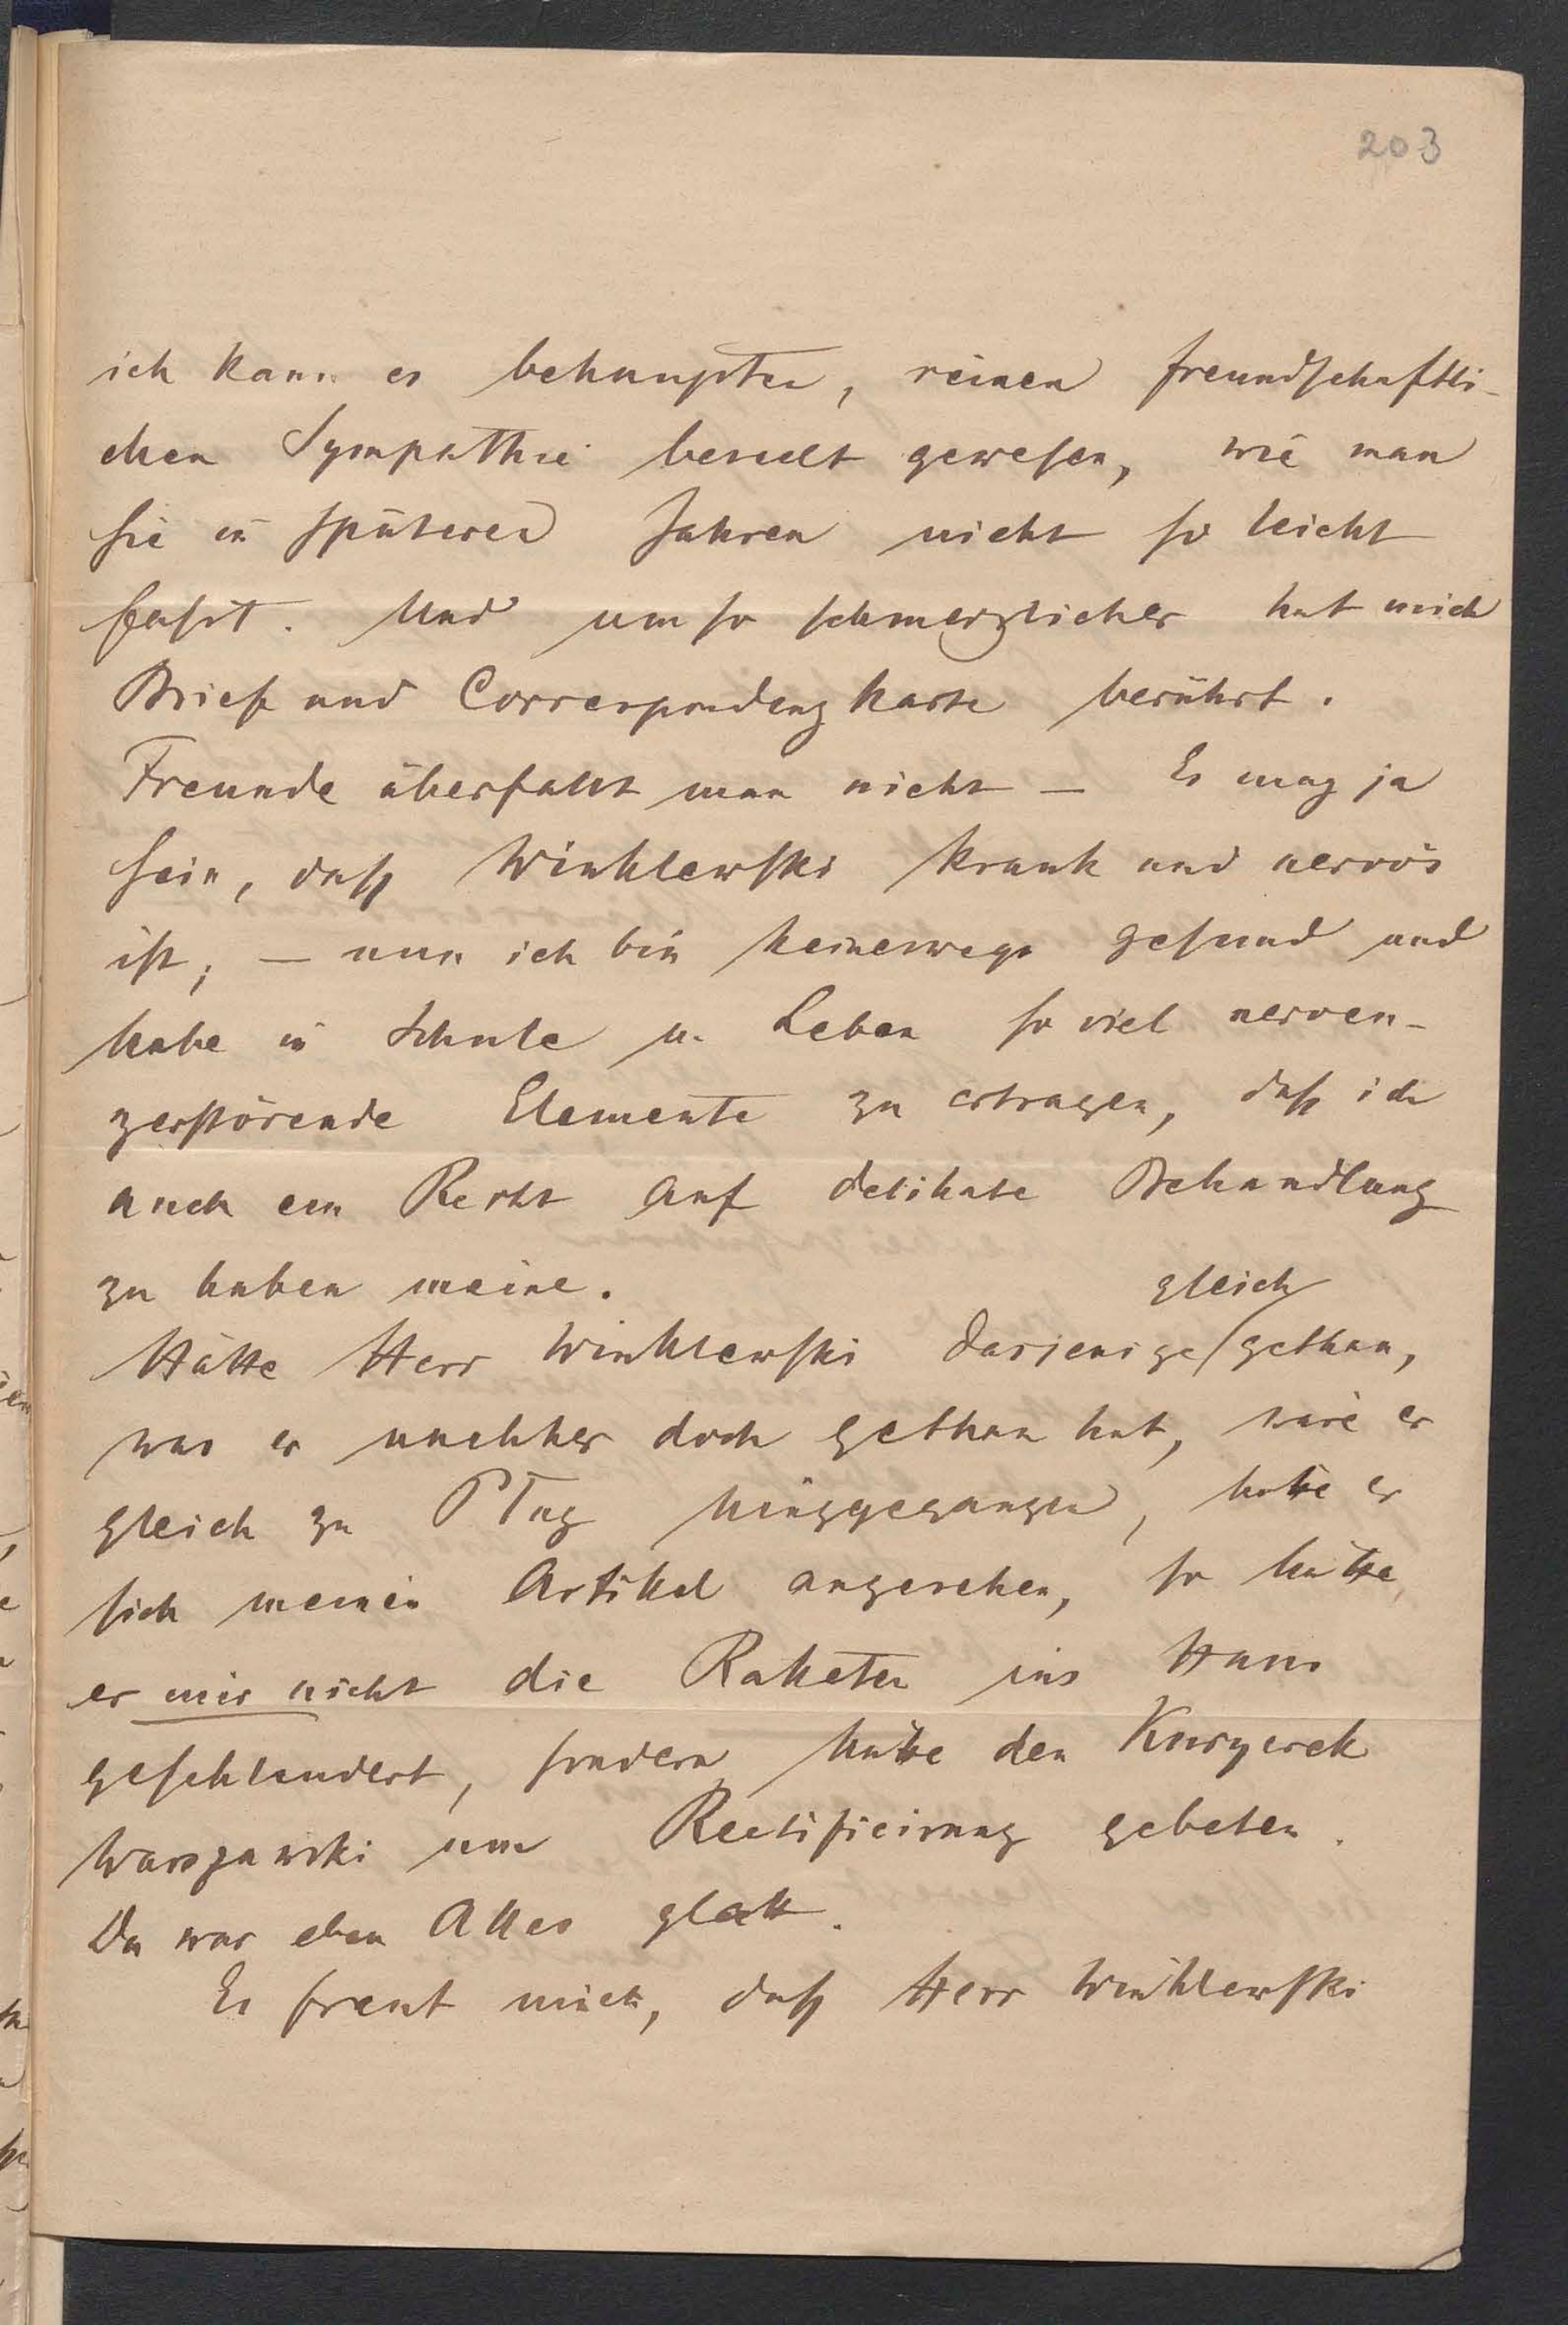 203
ich kann es behaupten, reinen freundschaftli-
chen Sympathie beseelt gewesen, wie man
sie in späteren Jahren nicht so leicht
faßt. Und um so schmerzlicher hat mich
Brief und Correspondenzkarte berührt.
Freunde überfällt man nicht — Es mag ja
sein, daß Winklewski krank und nervös
ist, — nun ich bin keineswegs gesund und
habe in Schule u. Leben so viel nerven-
zerstörende Elemente zu ertragen, daß ich
auch ein Recht auf delikate Behandlung
zu haben meine.
gleich
Hätte Herr Winklewski dasjenige gethan,
was er nachher doch gethan hat, wäre er
gleich zu hingegangen, hätte er
sich meinen Artikel angesehen, so hätte
er mir nicht die Raketen ins Haus
geschleudert, sondern hätte den Kuryerek
Warszawski um Rectificirung gebeten.
Da war eben Alles glatt.
Es freut mich, daß Herr Winklewski